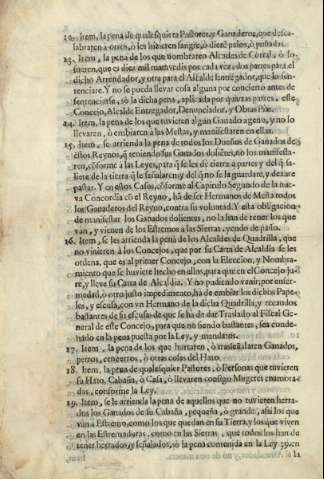 22. Item, la pena de qualesquiera Pastores, y Ganaderos, que descalabraren
à otros, ò les hizieren sangre, ò dieré palos, ò puñadas.
23. Item, la pena de los que nombraren Alcaldes de Corral, ò lo
fueren, que es diez mil maravedis por cada vez, dos partes para el
dicho Arrendador, y otra para el Alcalde Entregador, que lo sentenciare.
Y no se pueda llevar cosa alguna por concierto antes de
sentenciarse, sò la dicha pena, aplicada por quartas partes, este
Concejo, Alcalde Entregador, Denunciador, y Obras Pias.
24. Item, la pena de los que tuvieren algun Ganado ageno, y no lo
llevaren, ò embiaren à las Mestas, y manifestaren en ellas.
25. Item, se arrienda la pena de todos los Dueños de Ganados de
estos Reynos, q̃ teniendo sus Ganados dolientes, no los manifestaren,
cõforme à las Leyes, para q̃ se les de tierra à partes y del q̃ saliere
de la tierra q̃ le señalaren y del q̃ no se la guardare, y dexare
pastar. Y en estos Casos, cõforme al Capitulo Segundo de la nueva
Concordia cõ el Reyno, hã de ser Hermanos de Mesta todos
los Ganaderos del Reyno, contra su voluntad. Y esta obligacion
de manifestar los Ganados dolientes, no la han de tener los que
van, y vienen de los Estremos à las Sierras, yendo de passo.
26. Item, se les arrienda la pena de los Alcaldes de Quadrilla, que
no vinieren à los Concejos, que por su Carta de Alcaldia se les
ordena, que es al primer Concejo, con la Eleccion, y Nombramiento
que se huviere hecho en ellos, para que en el Concejo jure,
y lleve su Carta de Alcaldia. Y no pudiendo venir, por enfermedad,
ò otro justo impedimento, hà de embiar los dichos Papeles,
y escusa, con vn Hermano de la dicha Quadrilla, y recaudos
bastantes de su escusa de que se ha de dar Traslado al Fiscal General
de este Concejo, para que no siendo bastantes, sea condenado
en la pena puesta por la Ley, y mandatos.
27. Item, la pena de los que hurtaren, ò trasseñalaren Ganados,
perros, cencerros, ò otras cosas del Hato.
28. Item, la pena de qualesquier Pastores, ò Personas que tuvieren
su Hato, Cabaña, ò Casa, ò llevaren consigo Mugeres enamoradas,
conforme la Ley.
29. Item, se le arrienda la pena de aquellos que no tuvieren herrados
los Ganados de su Cabaña, pequeña, ò grande, assi los que
van à Estremo, como los que quedan en su Tierra, y los que viven
en las Estremaduras, como en las Sierras, que todos los han de
tener herrados, y señalados, sò la pena contenida en la Ley 39. en
la